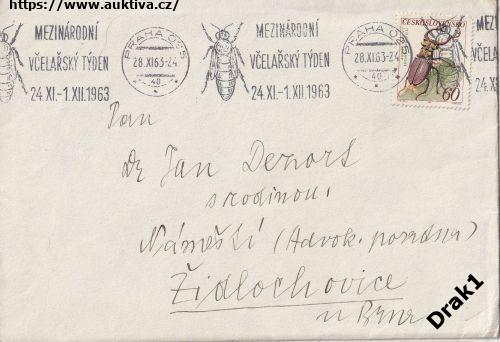 https://www.auktiva.cz/
MEZINÁRODNÍ
VČELAŘSKÝ TÝDEN
24.XI.-1.XII.1963
PRAHA 025
28.XI.63-24
40
MEZINÁRODNÍ
VČELAŘSKÝ TÝDEN
24.XI.-1.XII.1963
PRAHA 025
28.XI.63-24
40
ČESKOSLOVENSKO
60
MEZ
VČELA
24.XI
Pan
Dr Jan Dezort
s rodinou.
Náměstí (Advok. poradna)
Židlochovice
u Brna
Drak1